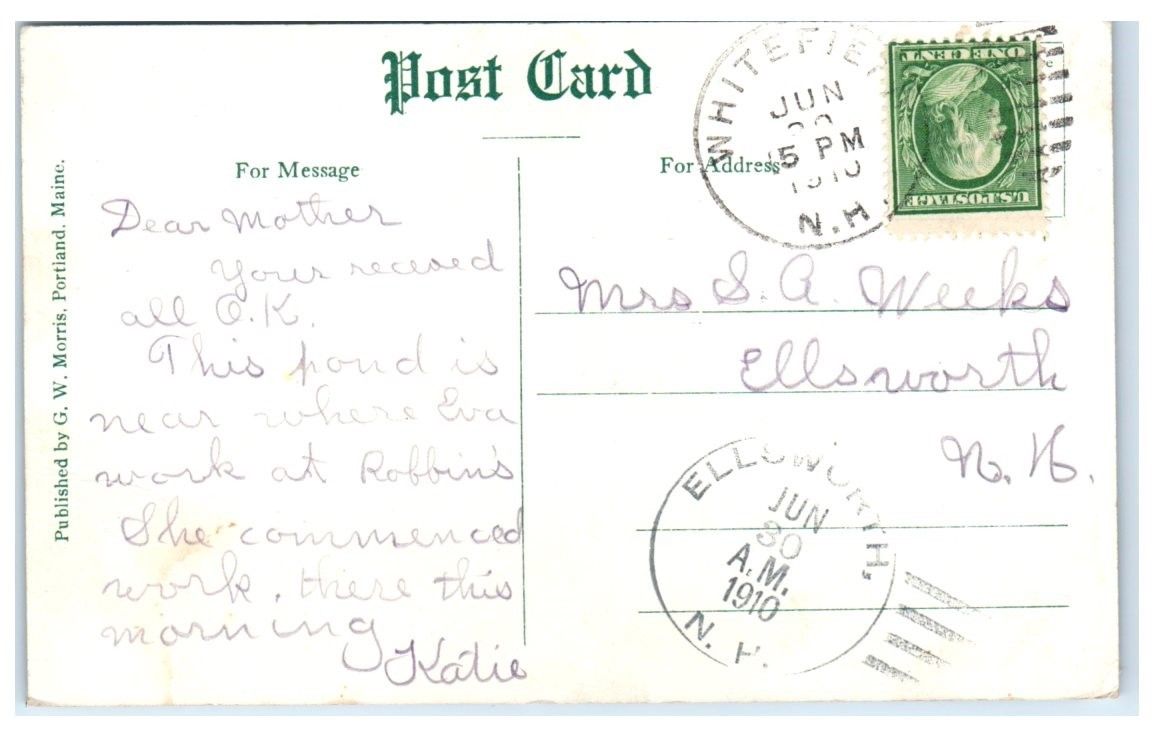 Post Card
For Message
For Address
Published by G. W. Morris, Portland, Maine.
WHITEFIE
JUN
5 PM
1910
N.H.
ONE CENT
U.S. POSTAGE
Dear Mother
Your receved
all O.K.
This pond is
near where Eva
work at Robbin's
She commenced
work, there this
morning
Katie
Mrs S. A. Weeks
Ellsworth
N. H.
ELLSWORTH,
JUN
30
A.M.
1910
N. H.